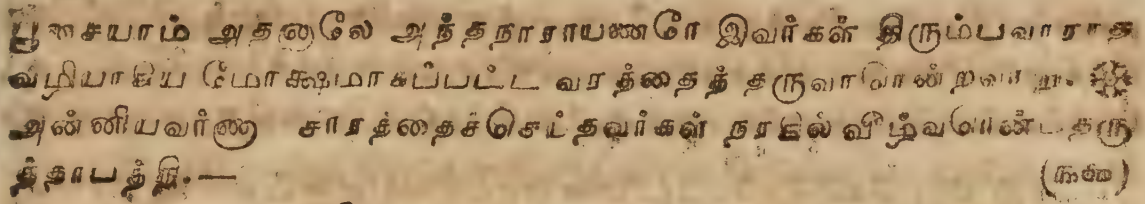 பூசையாம் அதனாலே அந்தநாராயணரே இவர்கள் திரும்பவாராத
வழியாகிய மோக்ஷமாகப்பட்ட வரத்தைத் தருவாரென்றவாறு. ❋
அன்னியவர்ணா சாரத்தைச்செய்தவர்கள் நரகில் வீழ்வரென்டதரு
த்தாபத்தி.—